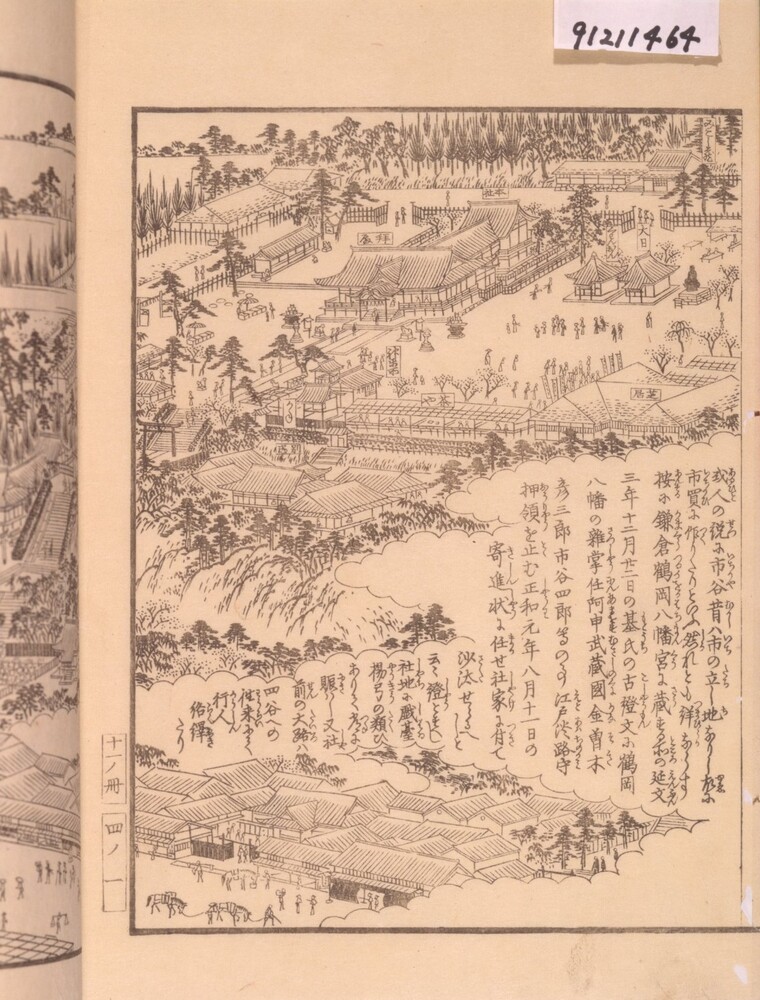 91211464
本社
拝殿
大日
茶や
芝居
或人の説に市谷昔ハ市の立し地なりし故に
市買に作りたりといふ然れとも詳ならす
按に鎌倉鶴岡八幡宮に蔵る所の延文
三年十二月廿二日の基氏の古證文に鶴岡
八幡の雑掌任阿申武蔵國金曽木
彦三郎市谷四郎等の事江戸淡路守
押領を止む正和元年八月十一日の
寄進状に任せ社家に付て
沙汰せらるへしと
云々證とすへし
社地に戯臺
楊弓の類ひ
ありて常に
賑ハし又社
前の大路ハ
四谷への
往来にて
行人
絡繹
たり
十一ノ冊
四ノ一